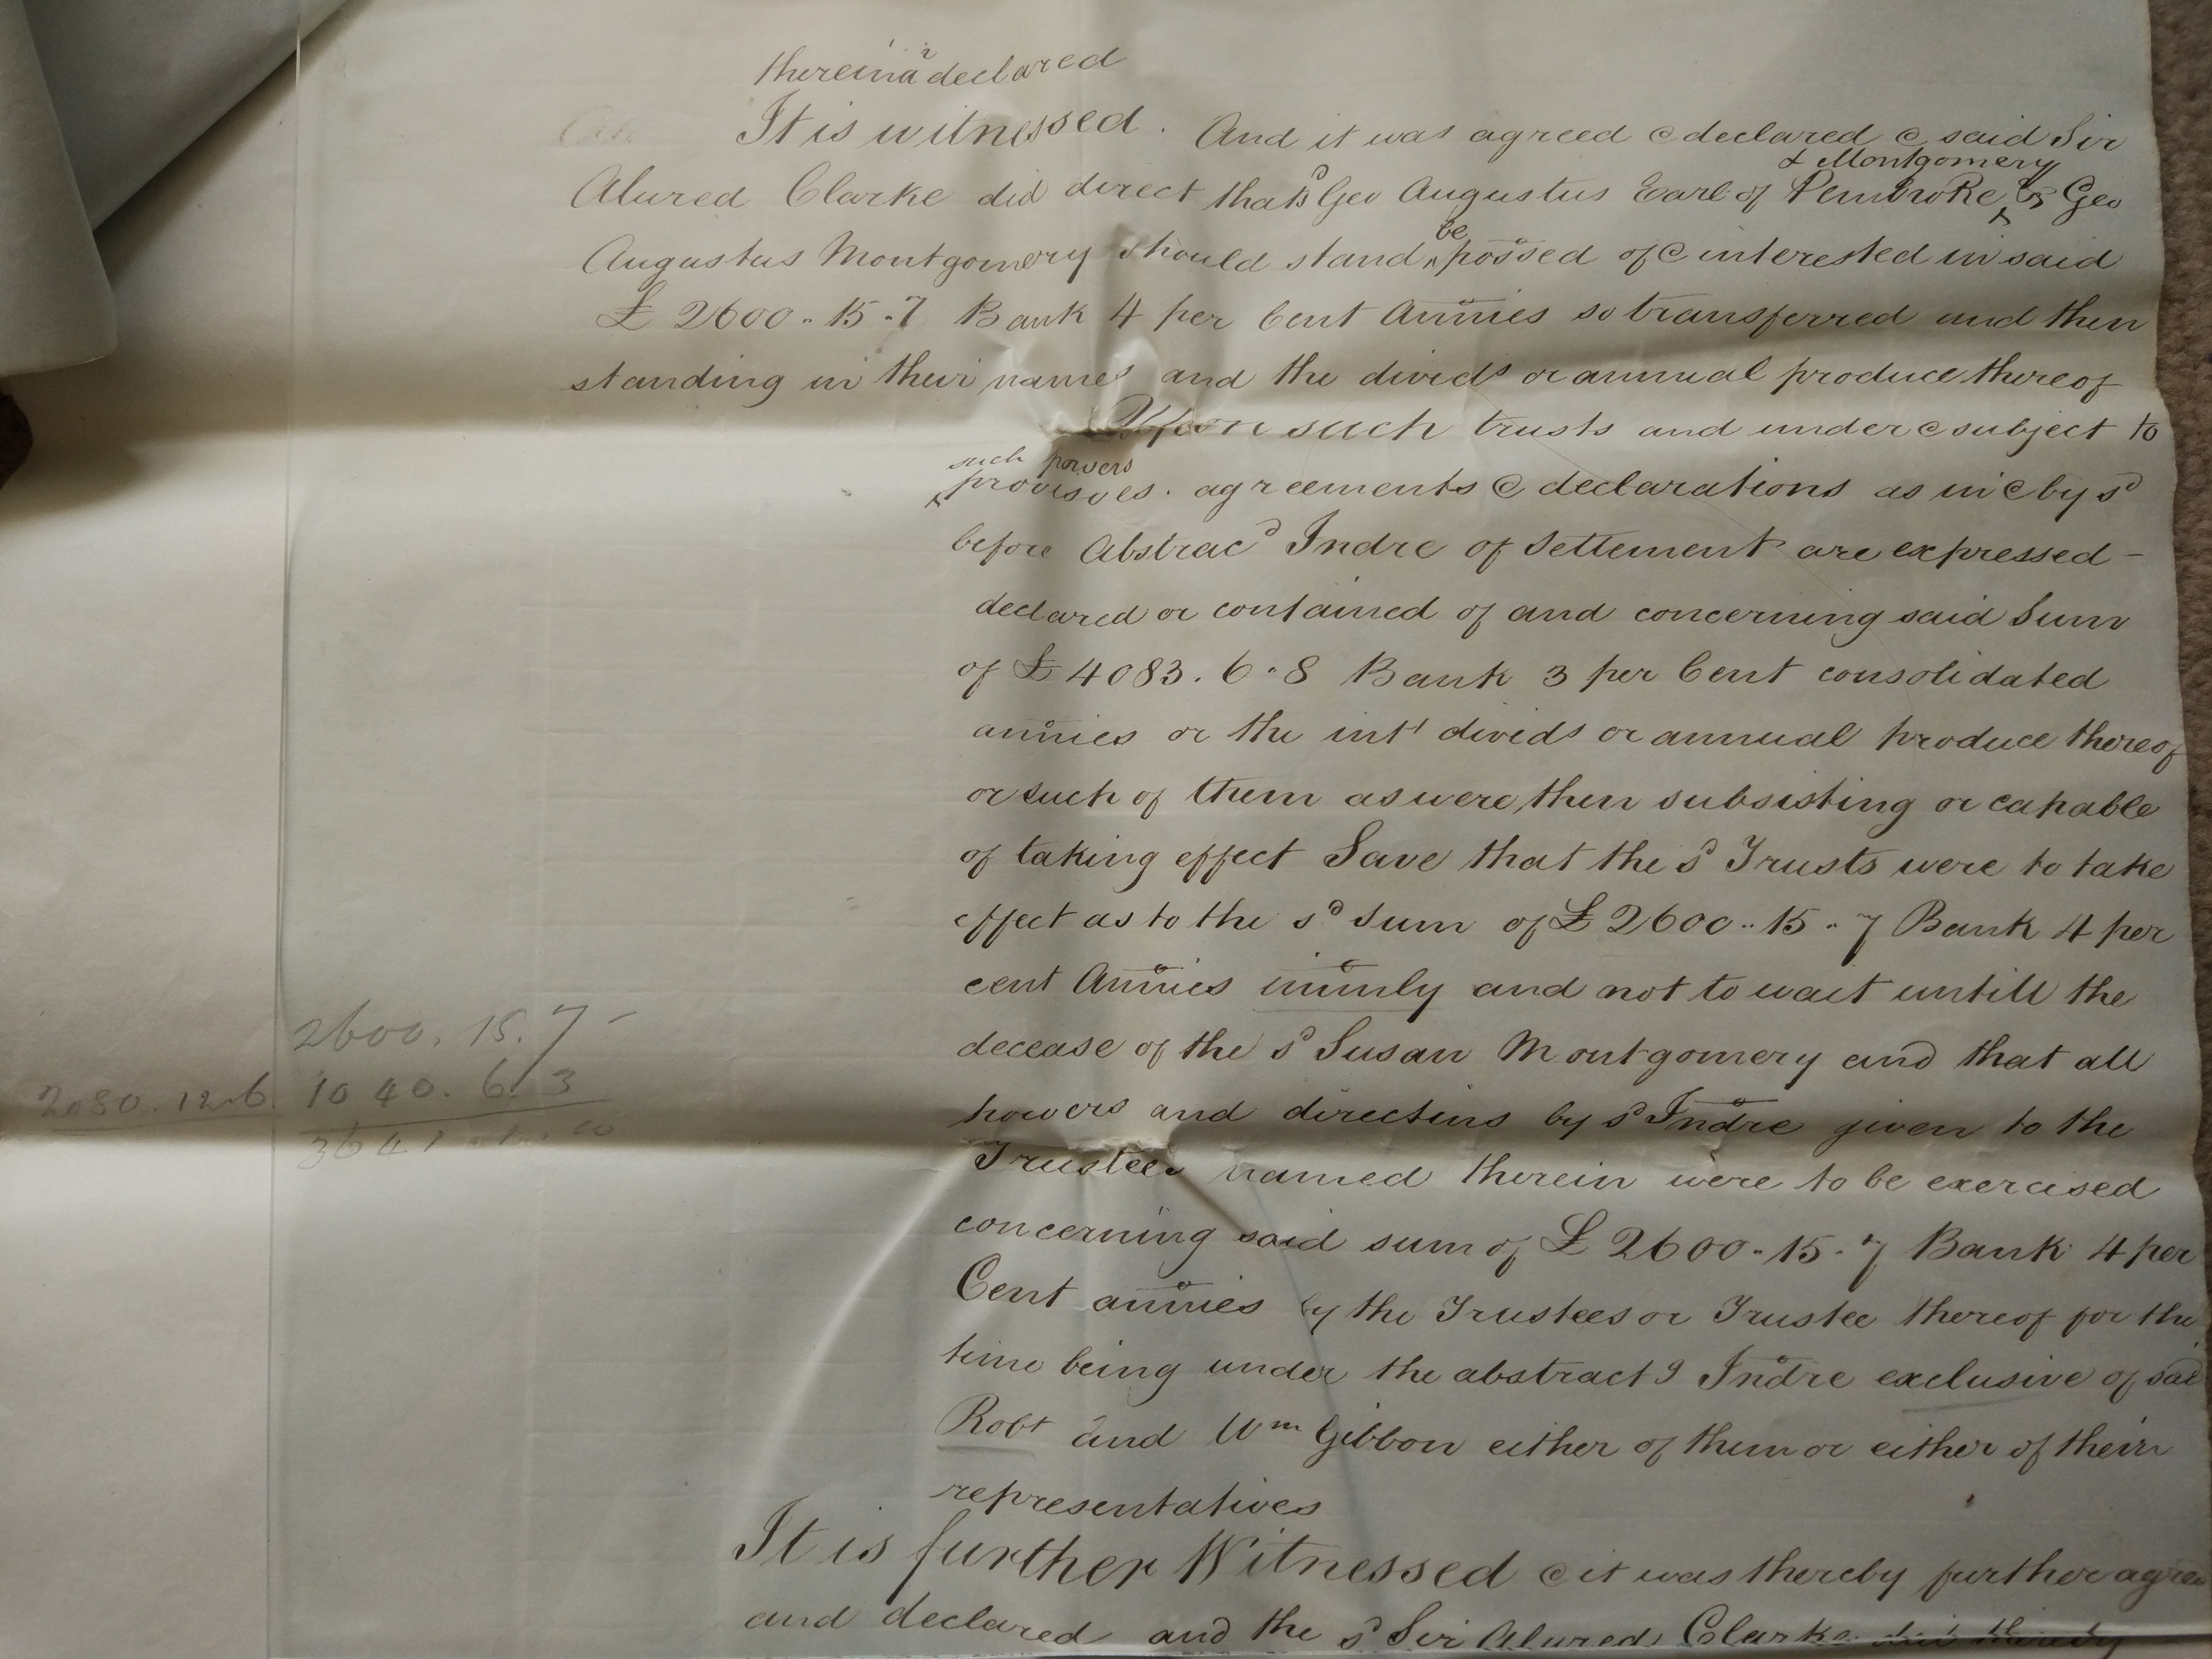 therein a^r declared
It is witnessed. And it was agreed & declared & said Sir
& Montgomery
Alured Clarke did direct that s^d Geo Augustus Earl of Pembroke & Geo
be
Augustus Montgomery should stand possed of & interested in said
£ 2600 " 15 " 7 Bank 4 per Cent Annies so transferred and then
standing in their names and the divids or annual produce thereof
Upon such trusts and under & subject to
such powers
provisoes. agreements & declarations as in & by s^d
before Abstrac^d Indre of Settlement are expressed -
declared or contained of and concerning said Sum
of £ 4083. 6 " 8 Bank 3 per Cent consolidated
annies or the int^t divids or annual produce thereof
or such of them as were then subsisting or capable
of taking effect Save that the s^d Trusts were to take
effect as to the s^d Sum of £ 2600 " 15 " 7 Bank 4 per
cent Annies immly and not to wait untill the
decease of the s^d Susan Montgomery and that all
powers and directins by s^d Indre given to the
Trustees named therein were to be exercised
concerning said sum of £ 2600 " 15 " 7 Bank 4 per
Cent annies by the Trustees or Trustee thereof for the
time being under the abstract^g Indre exclusive of said
Rob^t and W^m Gibbon either of them or either of their
representatives
It is further Witnessed & it was thereby further agreed
and declared and the s^d Sir Alured Clarke did thereby
2600. 15. 7 -
2080. 12. 6 1040. 6. 3